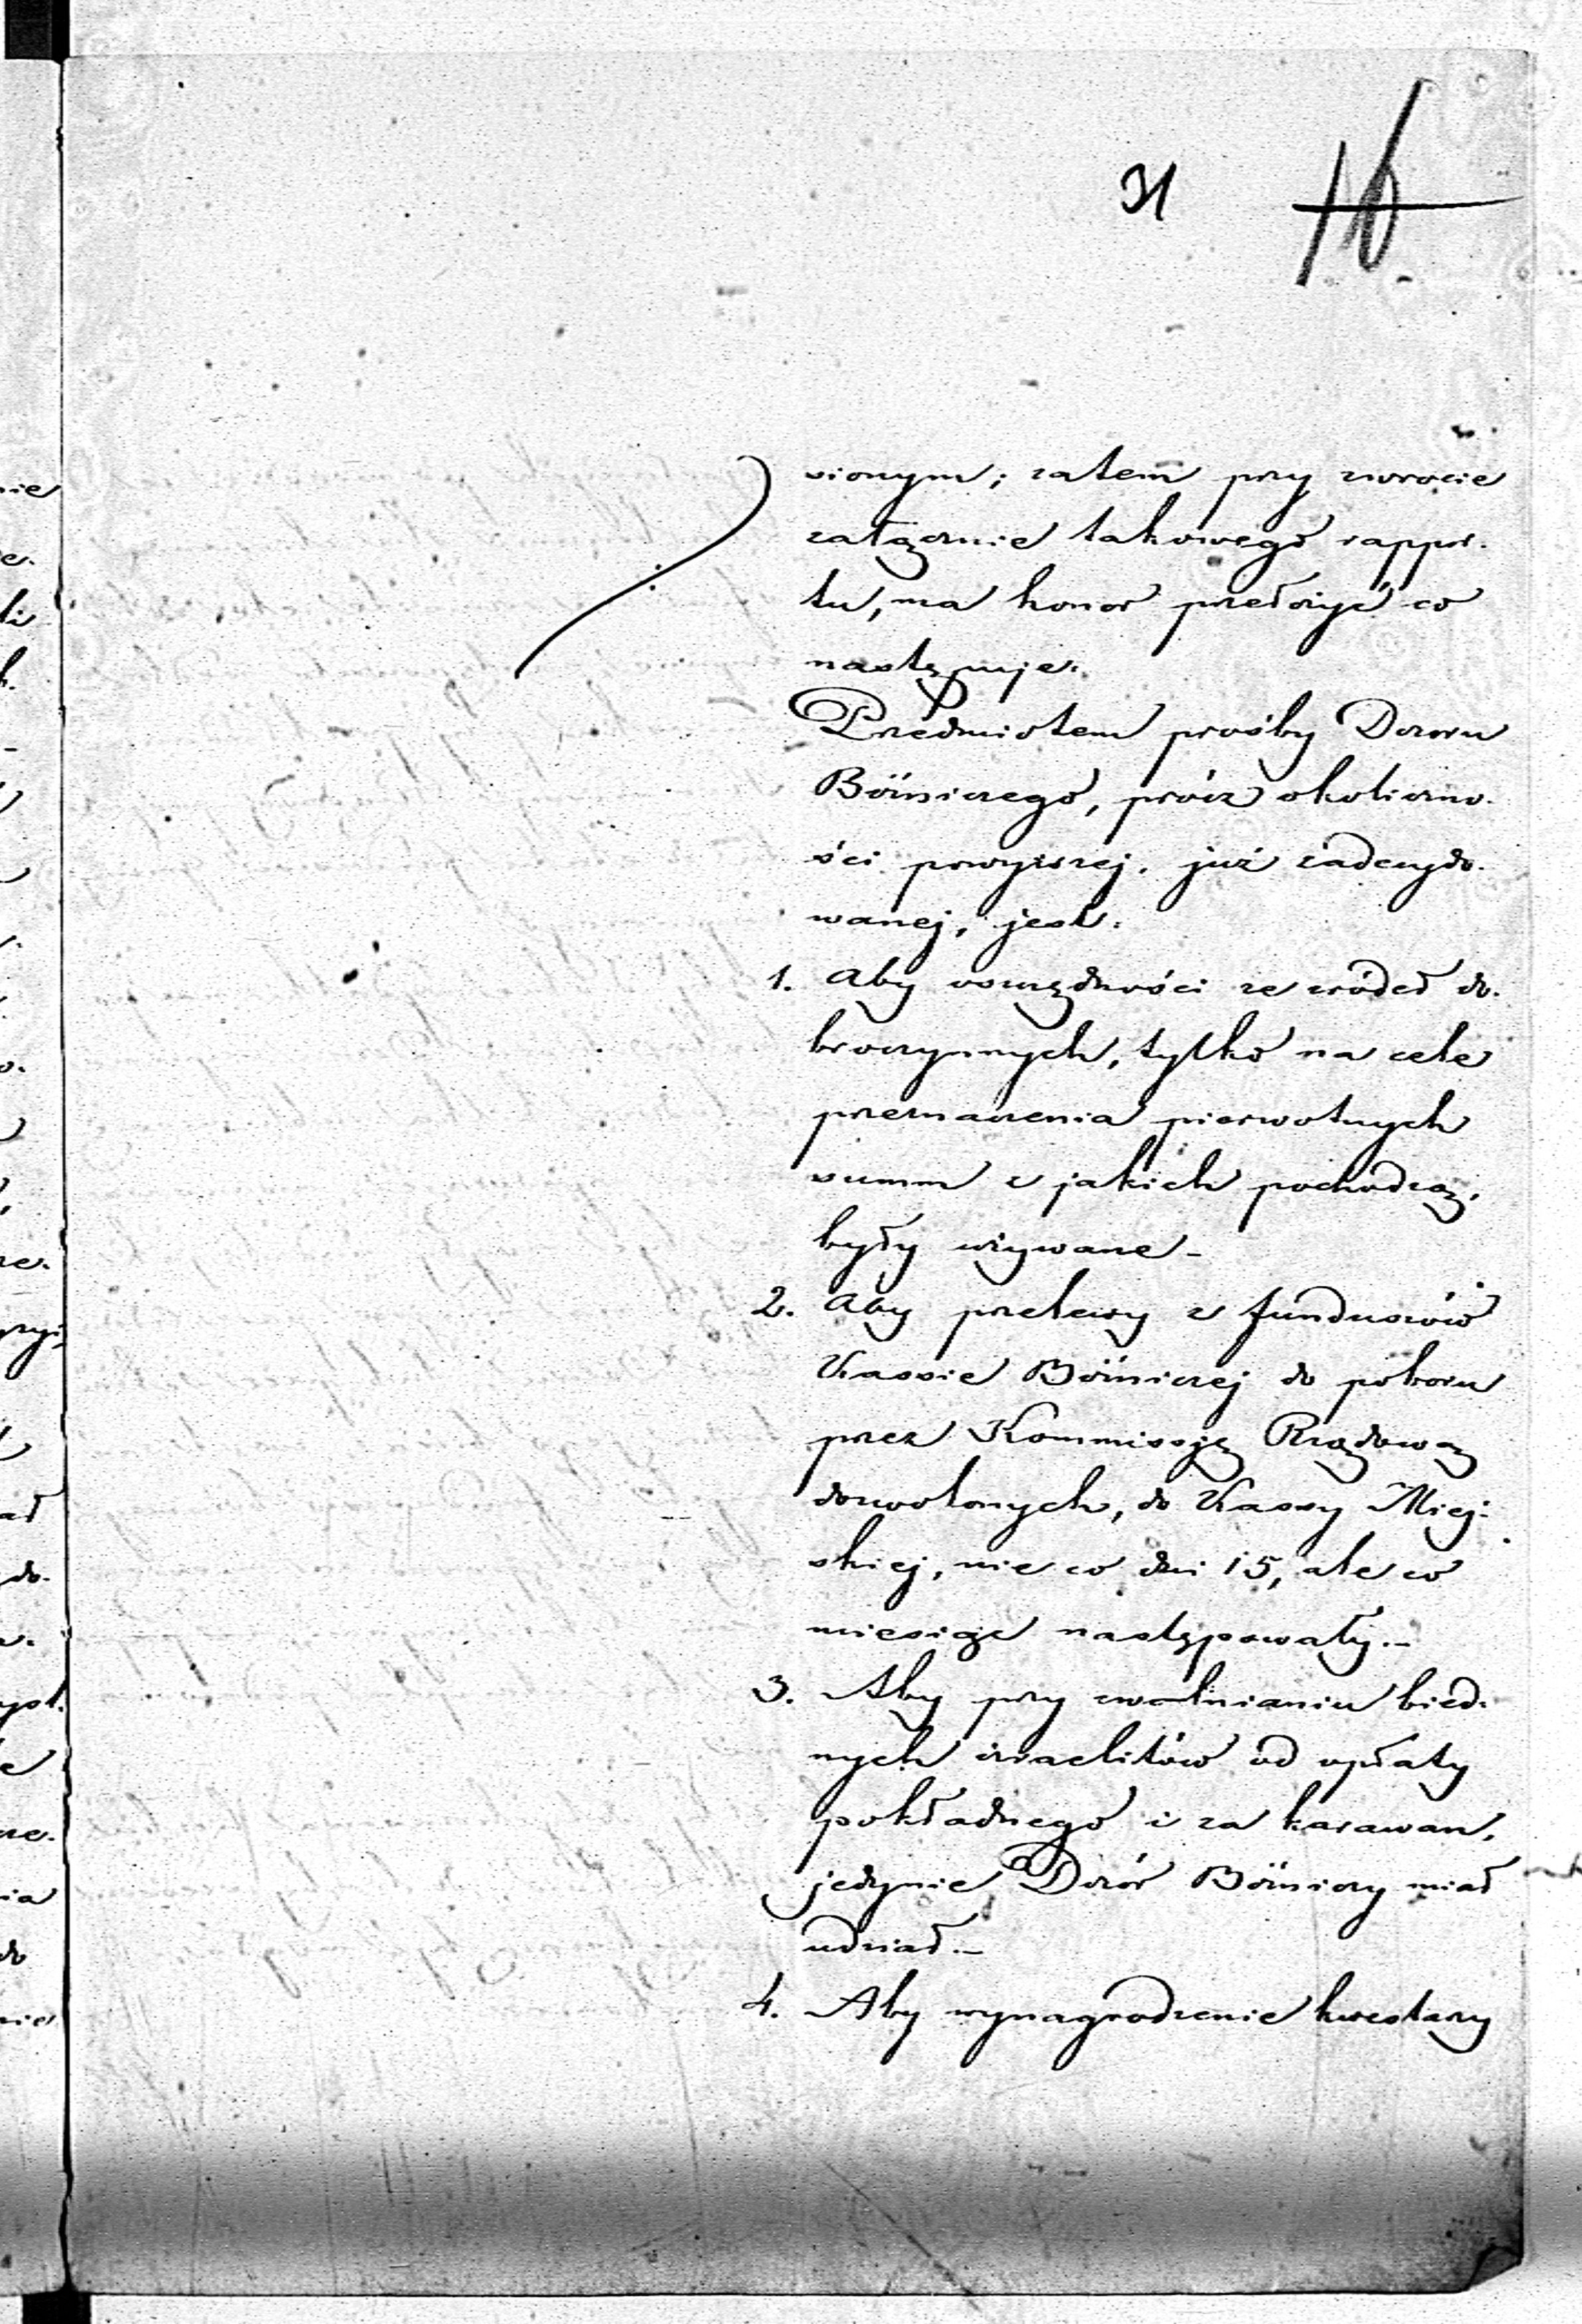 31 16
sionym; zatem przy zwrocie
załącznie takowego rappor-
tu, ma honor przełożyć co
następuje.
Przedmiotem prośby Dozoru
Bóżniczego, prócz okoliczno-
ści powyższej, już zadecydo-
wanej, jest:
1. Aby oszczędności ze źródeł do-
broczynnych, tylko na cele
przeznaczenia pierwotnych
summ z jakich pochodzą,
były używane -
2. Aby przelewy z funduszów
Kassie Bóźniczej do poboru
przez Kommissję Rządową
dozwolonych, do Kassy Miej-
skiej, nie co dni 15, ale co
miesiąc następowały. -
3. Aby przy uwalnianiu bied-
nych izraelitów od opłaty
pokładnego i za karawan,
jedynie Dozór Bóżniczy miał
udział. -
4. Aby wynagrodzenie kwestarzy